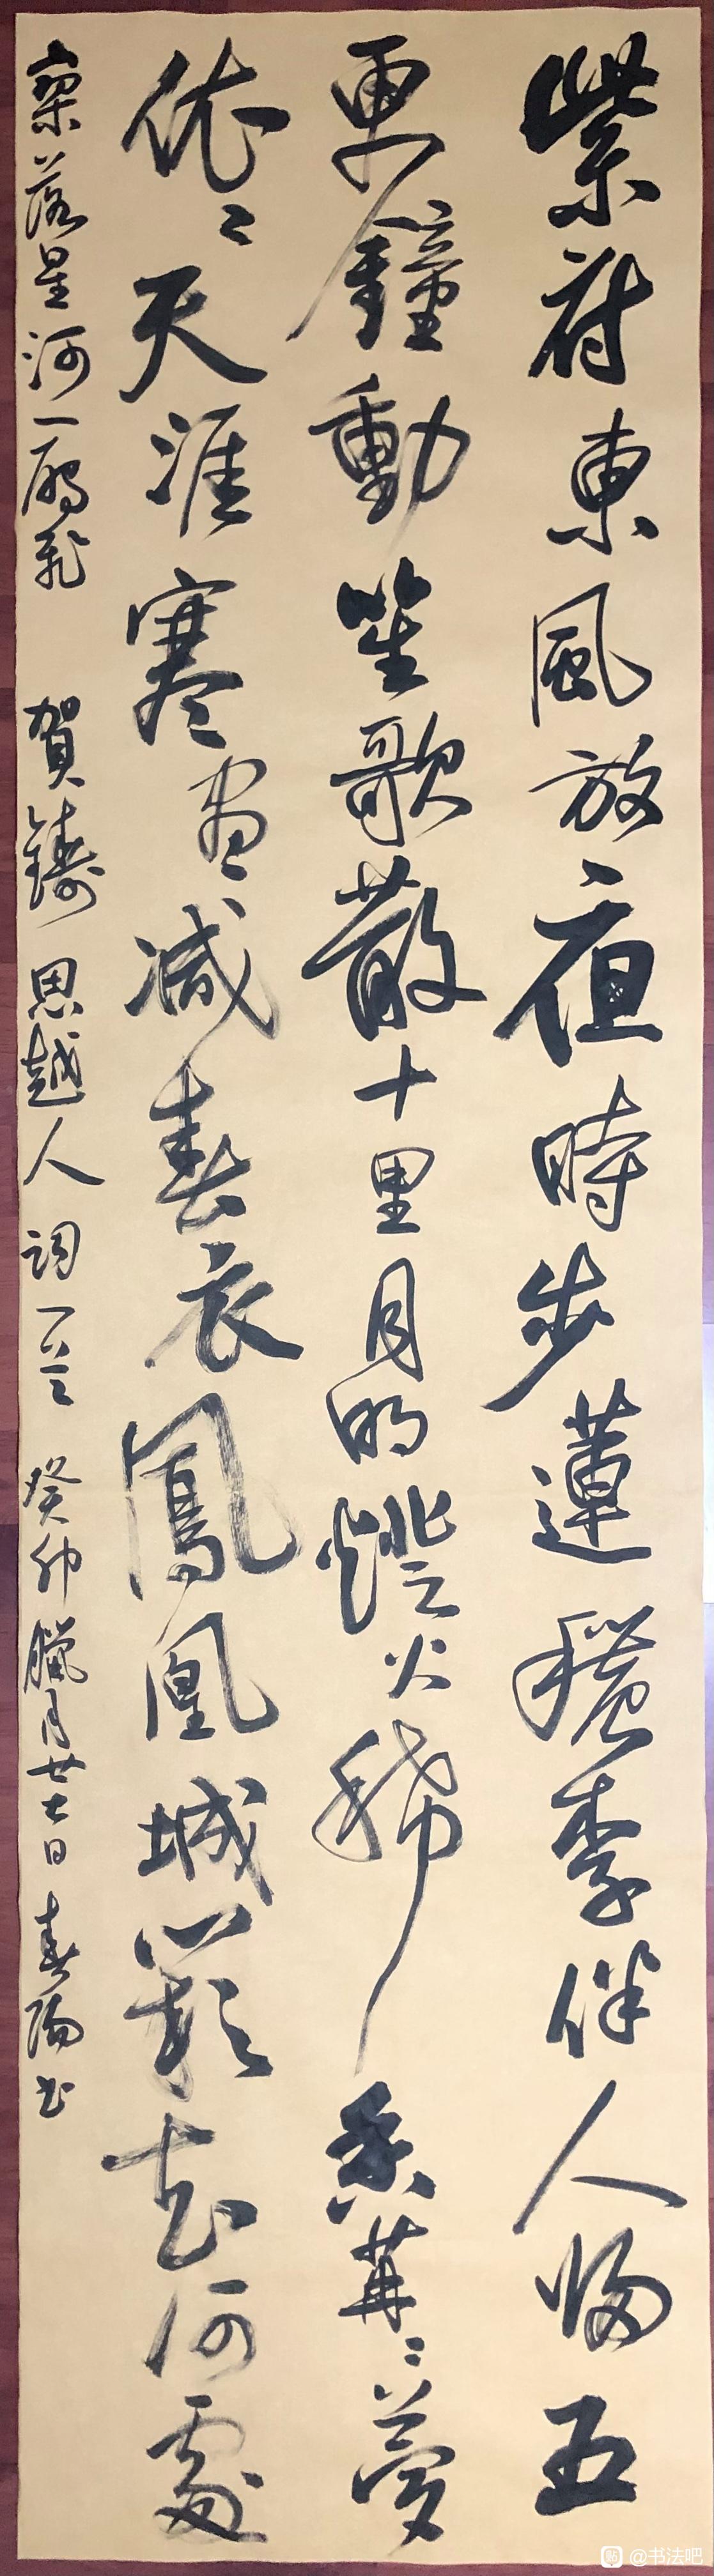 紫府東風放夜時步蓮穠李伴人歸五
更鐘動笙歌散十里月明燈火稀香苒〻夢
依〻天涯寒盡減春衣鳳凰城闕知何處
寥落星河一雁飛 賀鑄 思越人 詞一首 癸卯臘月廿七日 春陽書
貼 @书法吧